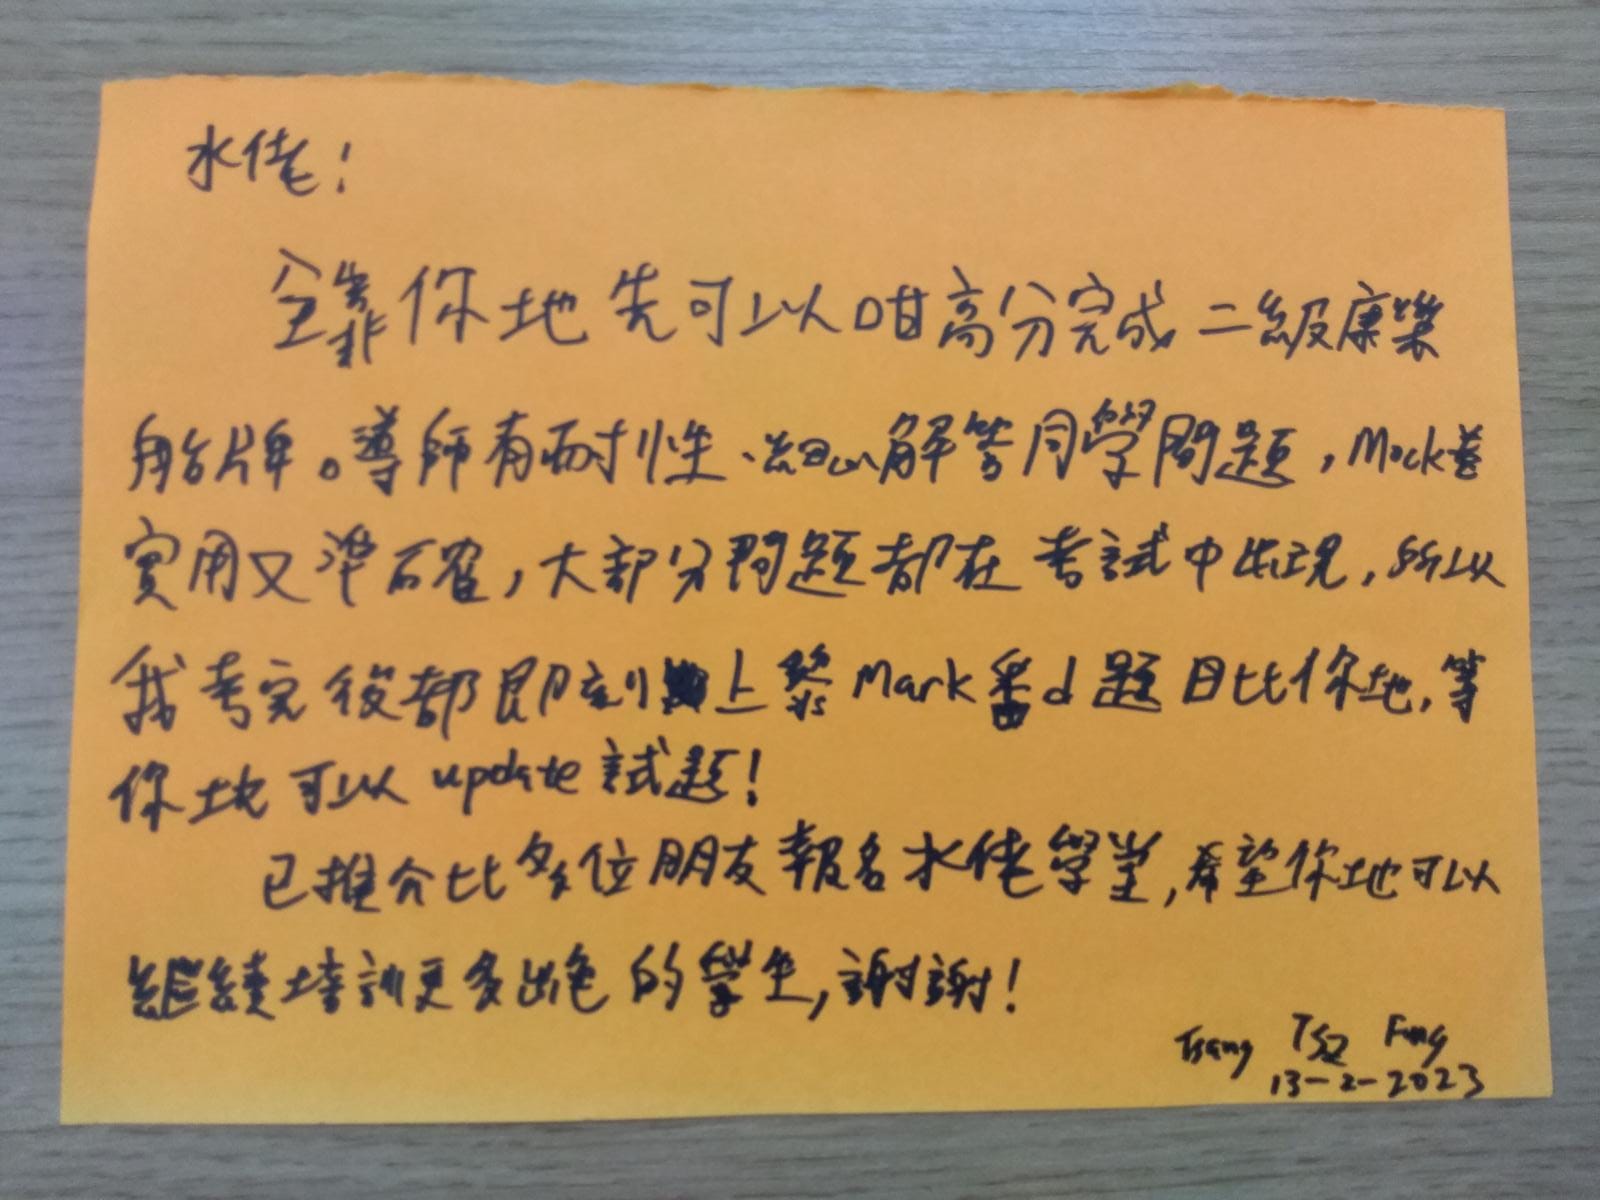 水佬！
全靠你地先可以咁高分完成二級康樂
船牌。導師有耐性、細心解答同學問題，Mock卷
實用又準確，大部分問題都在考試中出現，所以
我考完後都即刻上黎Mark番d題目比你地，等
你地可以update試題！
已推介比多位朋友報名水佬學堂，希望你地可以
繼續培訓更多出色的學生，謝謝！
Tsang Tsz Fung
13-2-2023